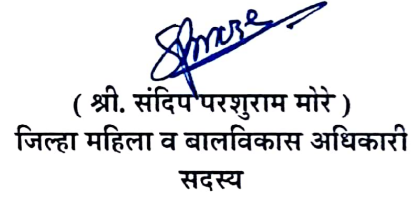 ( श्री. संदिप परशुराम मोरे )
जिल्हा महिला व बालविकास अधिकारी
सदस्य